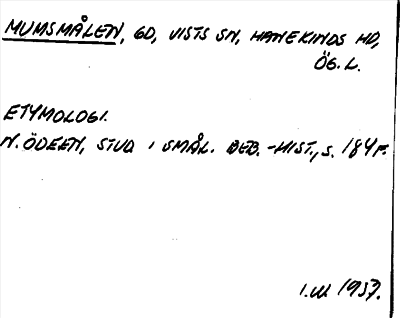 MUMSMÅLEN, GD, VISTS SN, HANEKINDS HD,
ÖG. L.
ETYMOLOGI.
N. ÖDEEN, STUD I SMÅL. BEB.-HIST., S. 184 F.
1937.